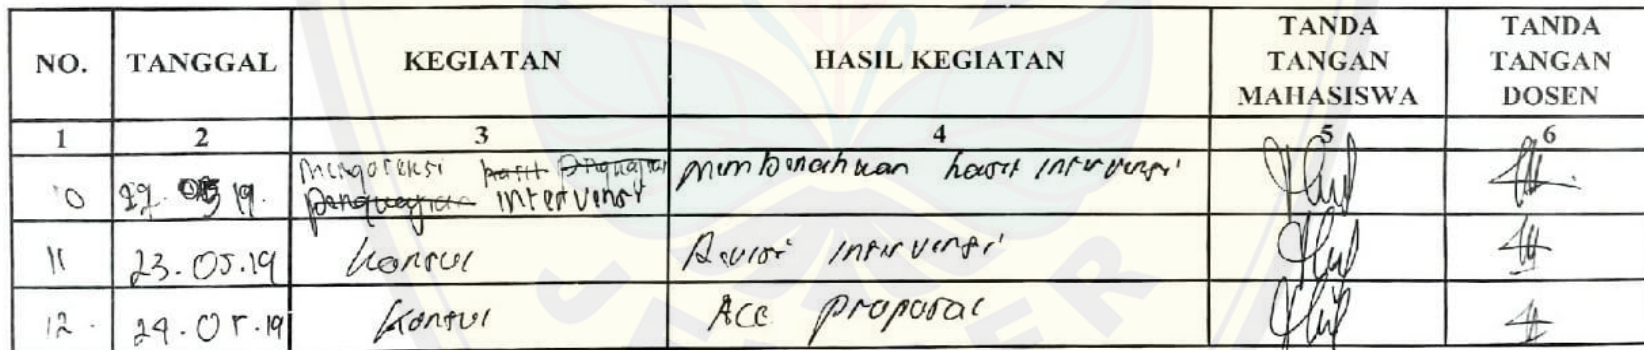 NO. TANGGAL KEGIATAN HASIL KEGIATAN TANDA TANGAN MAHASISWA TANDA TANGAN DOSEN
1 2 3 4 5 6
10 19. Mengoreksi hasil intervensi membenahkan hasil intervensi
11 23.05.19 Konsul Revisi intervensi
12. 24.05.19 Konsul Acc proposal
JEMBER